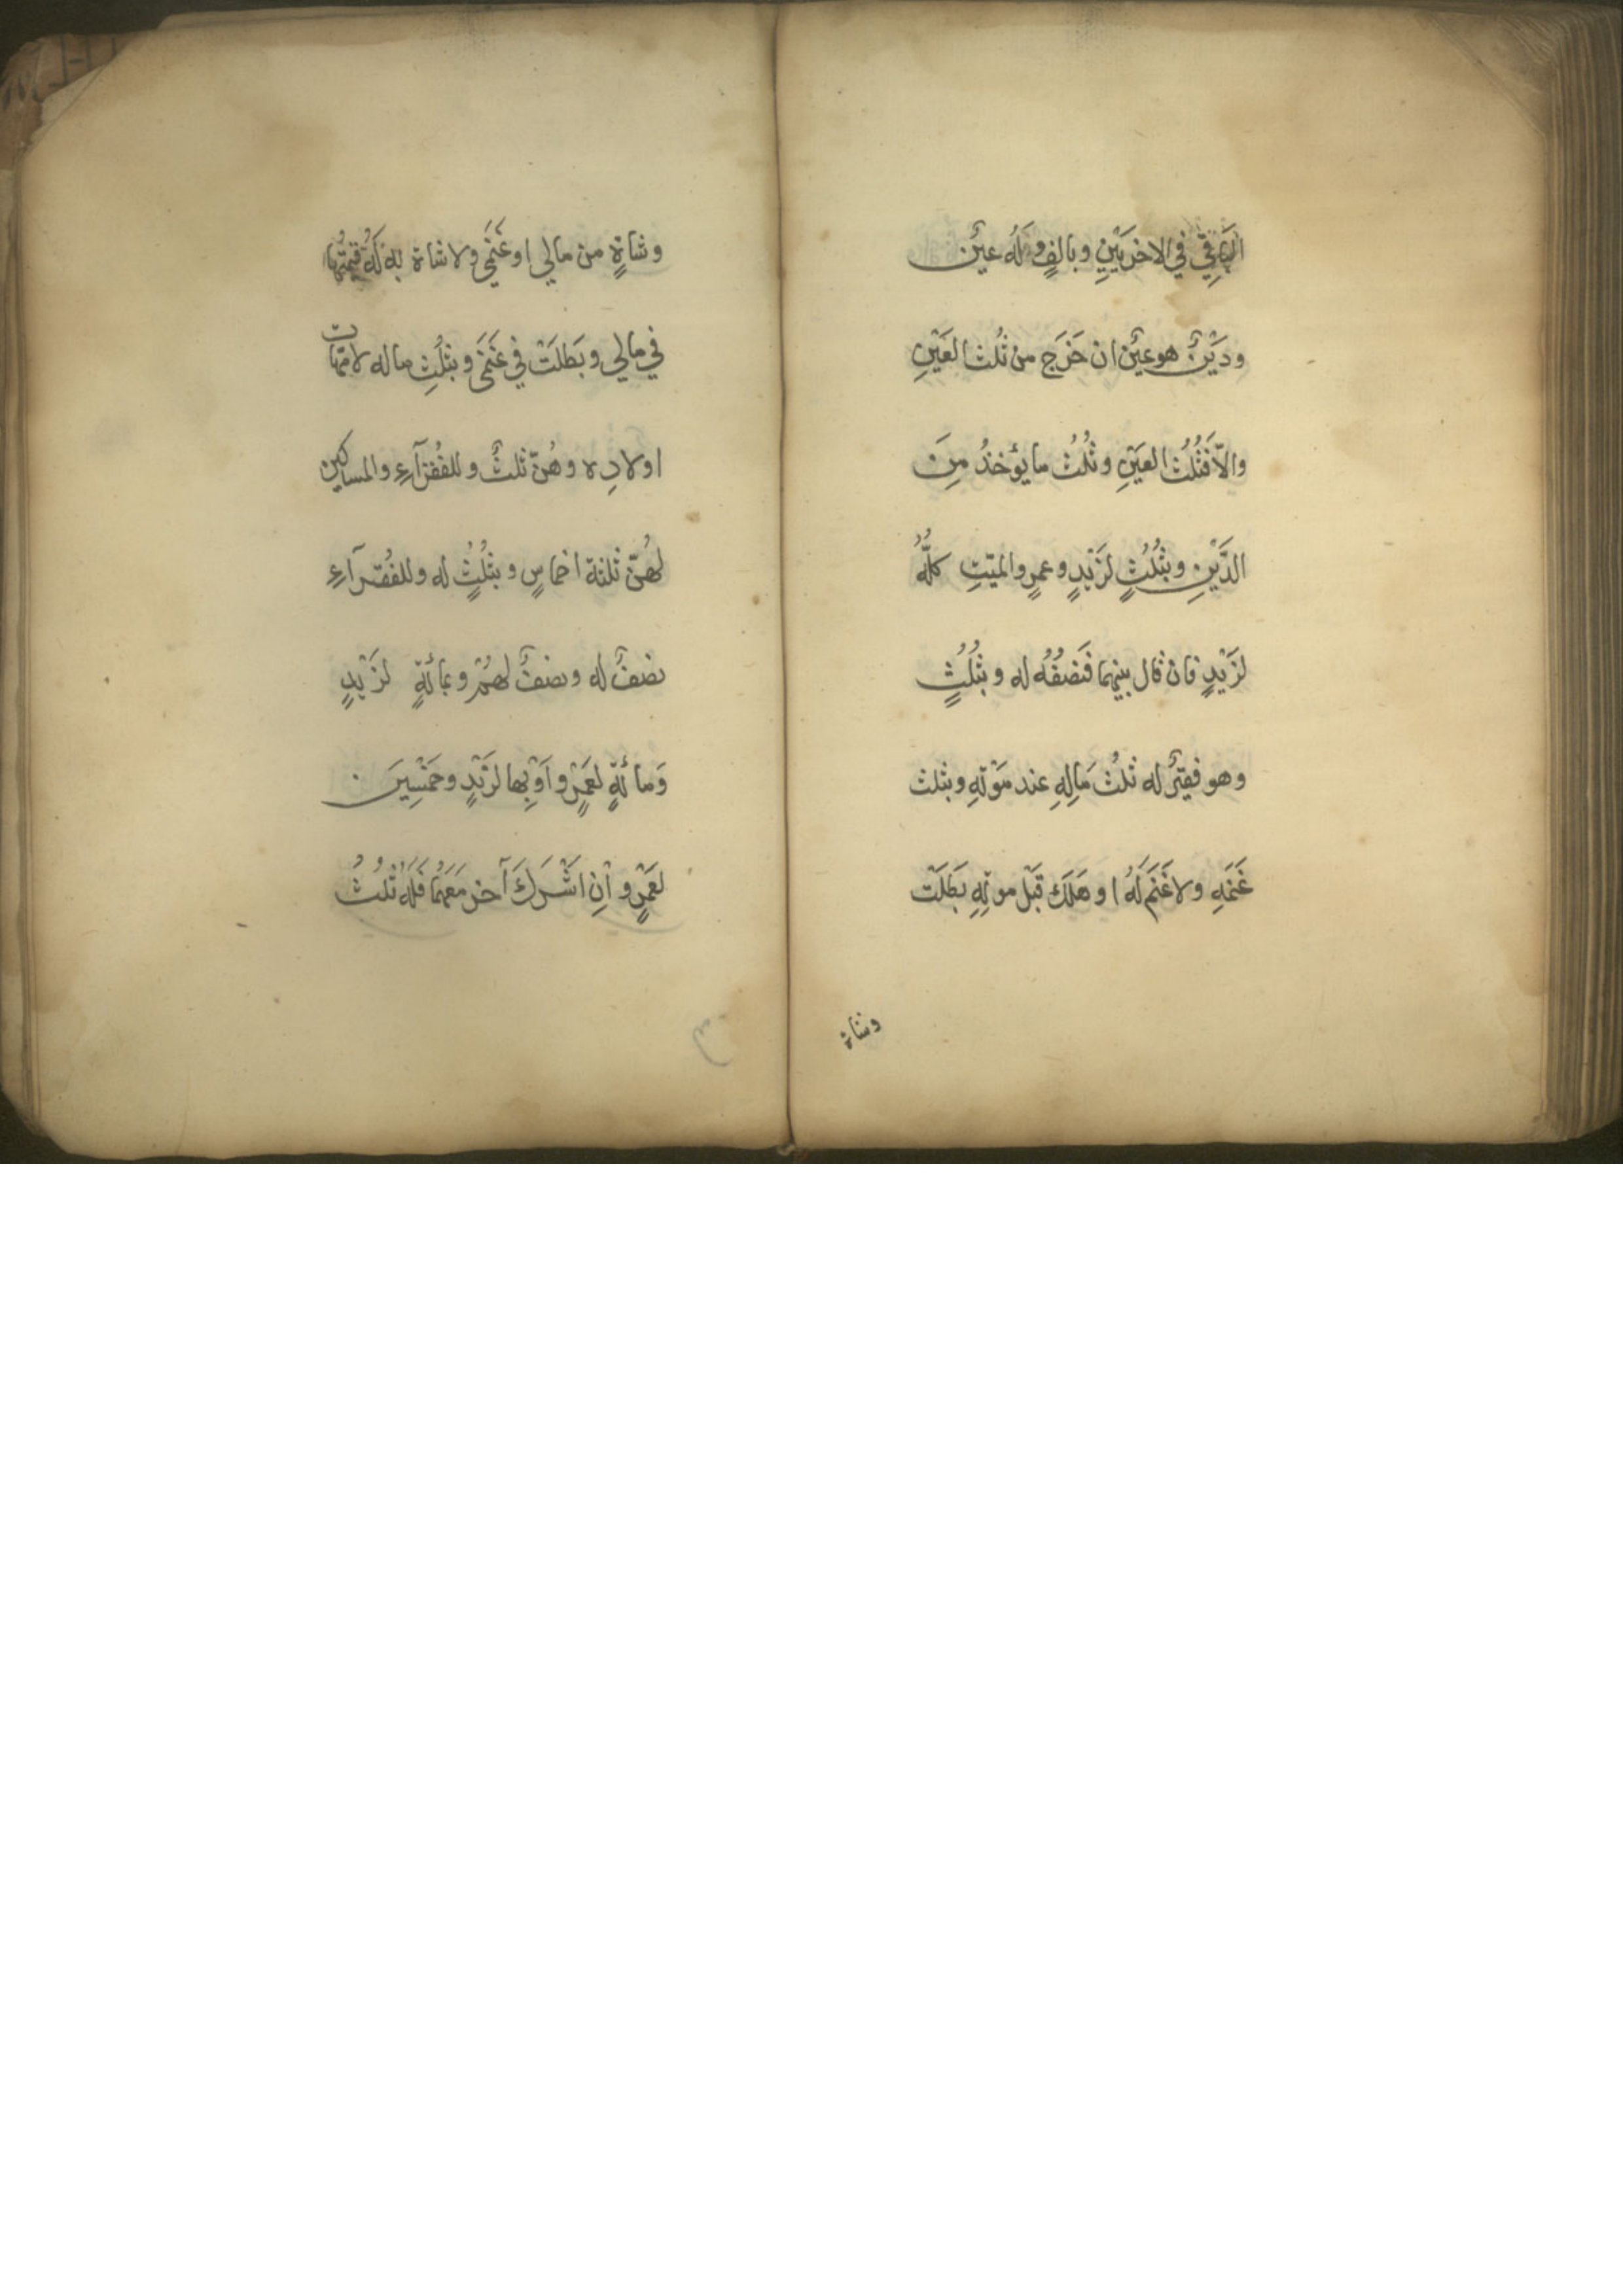 الباقِي في الاخرَيَيْنِ وبالفٍ وَلَه عينٌ
ودَيْنٌ هو عينٌ ان خَرَج من ثُلث العَيْنِ
والاّ فَثُلُثُ العيَنِ وثُلُثُ ما يؤخذُ مِنَ
الدَّيْنِ وبثُلُثٍ لزَيْدٍ وعمرٍ والميّتِ كلُّهُ
لزَيْدٍ فان قال بينهما فَنصْفُهُ له وبثُلُثٍ
وهو فقيرٌ له ثلثُ مَالِهِ عند مَوْتهِ وبثلث
غَنَمَهِ ولا غَنَمَ لَهُ او هَلَك قَبْل موتِهِ بَطَلَتْ
وشاة
وشاةٍ من مالي او غَنَمَي ولا شاة له لَهُ قيمتُها
في مالي وبَطلَتْ في غَنَمَي وبثلُثِ ماله لامّهات
اولادِه وهُنّ ثلثٌ وللفُقرآءِ والمساكين
لهُنّ ثلثة اخماسٍ وبثلُثٍ له وللفُقرآءِ
نصفٌ له ونصفٌ لهُمْ وبمائةٍ لزَيْدٍ
وَمائةٍ لعَمْرٍ واَوْ بها لزَيْدٍ وخَمْسِيَن
لعَمْرٍ واِنِ اشَْرَكَ آخر مَعَهُما فَلَهُ ثلُثُ